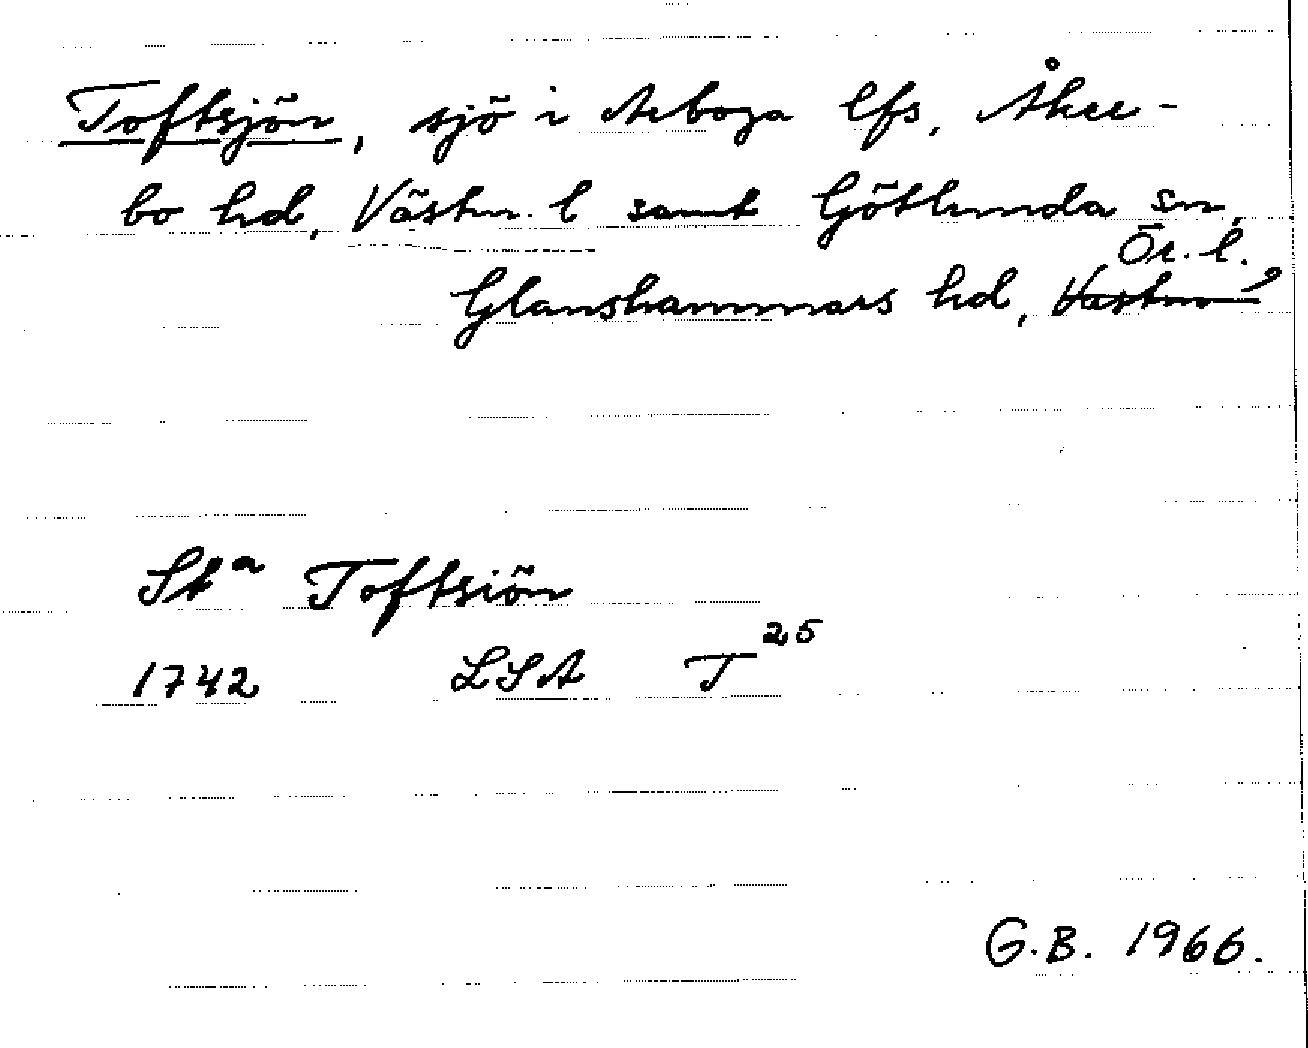 Toftsjön, sjö i Arboga lfs, Åker-
bo hd, Västm. l samt Götlunda sn,
Ör. l.
Glanshammars hd, Västm l
St a Toftsiön
1742 LSA T 25
G.B. 1966.